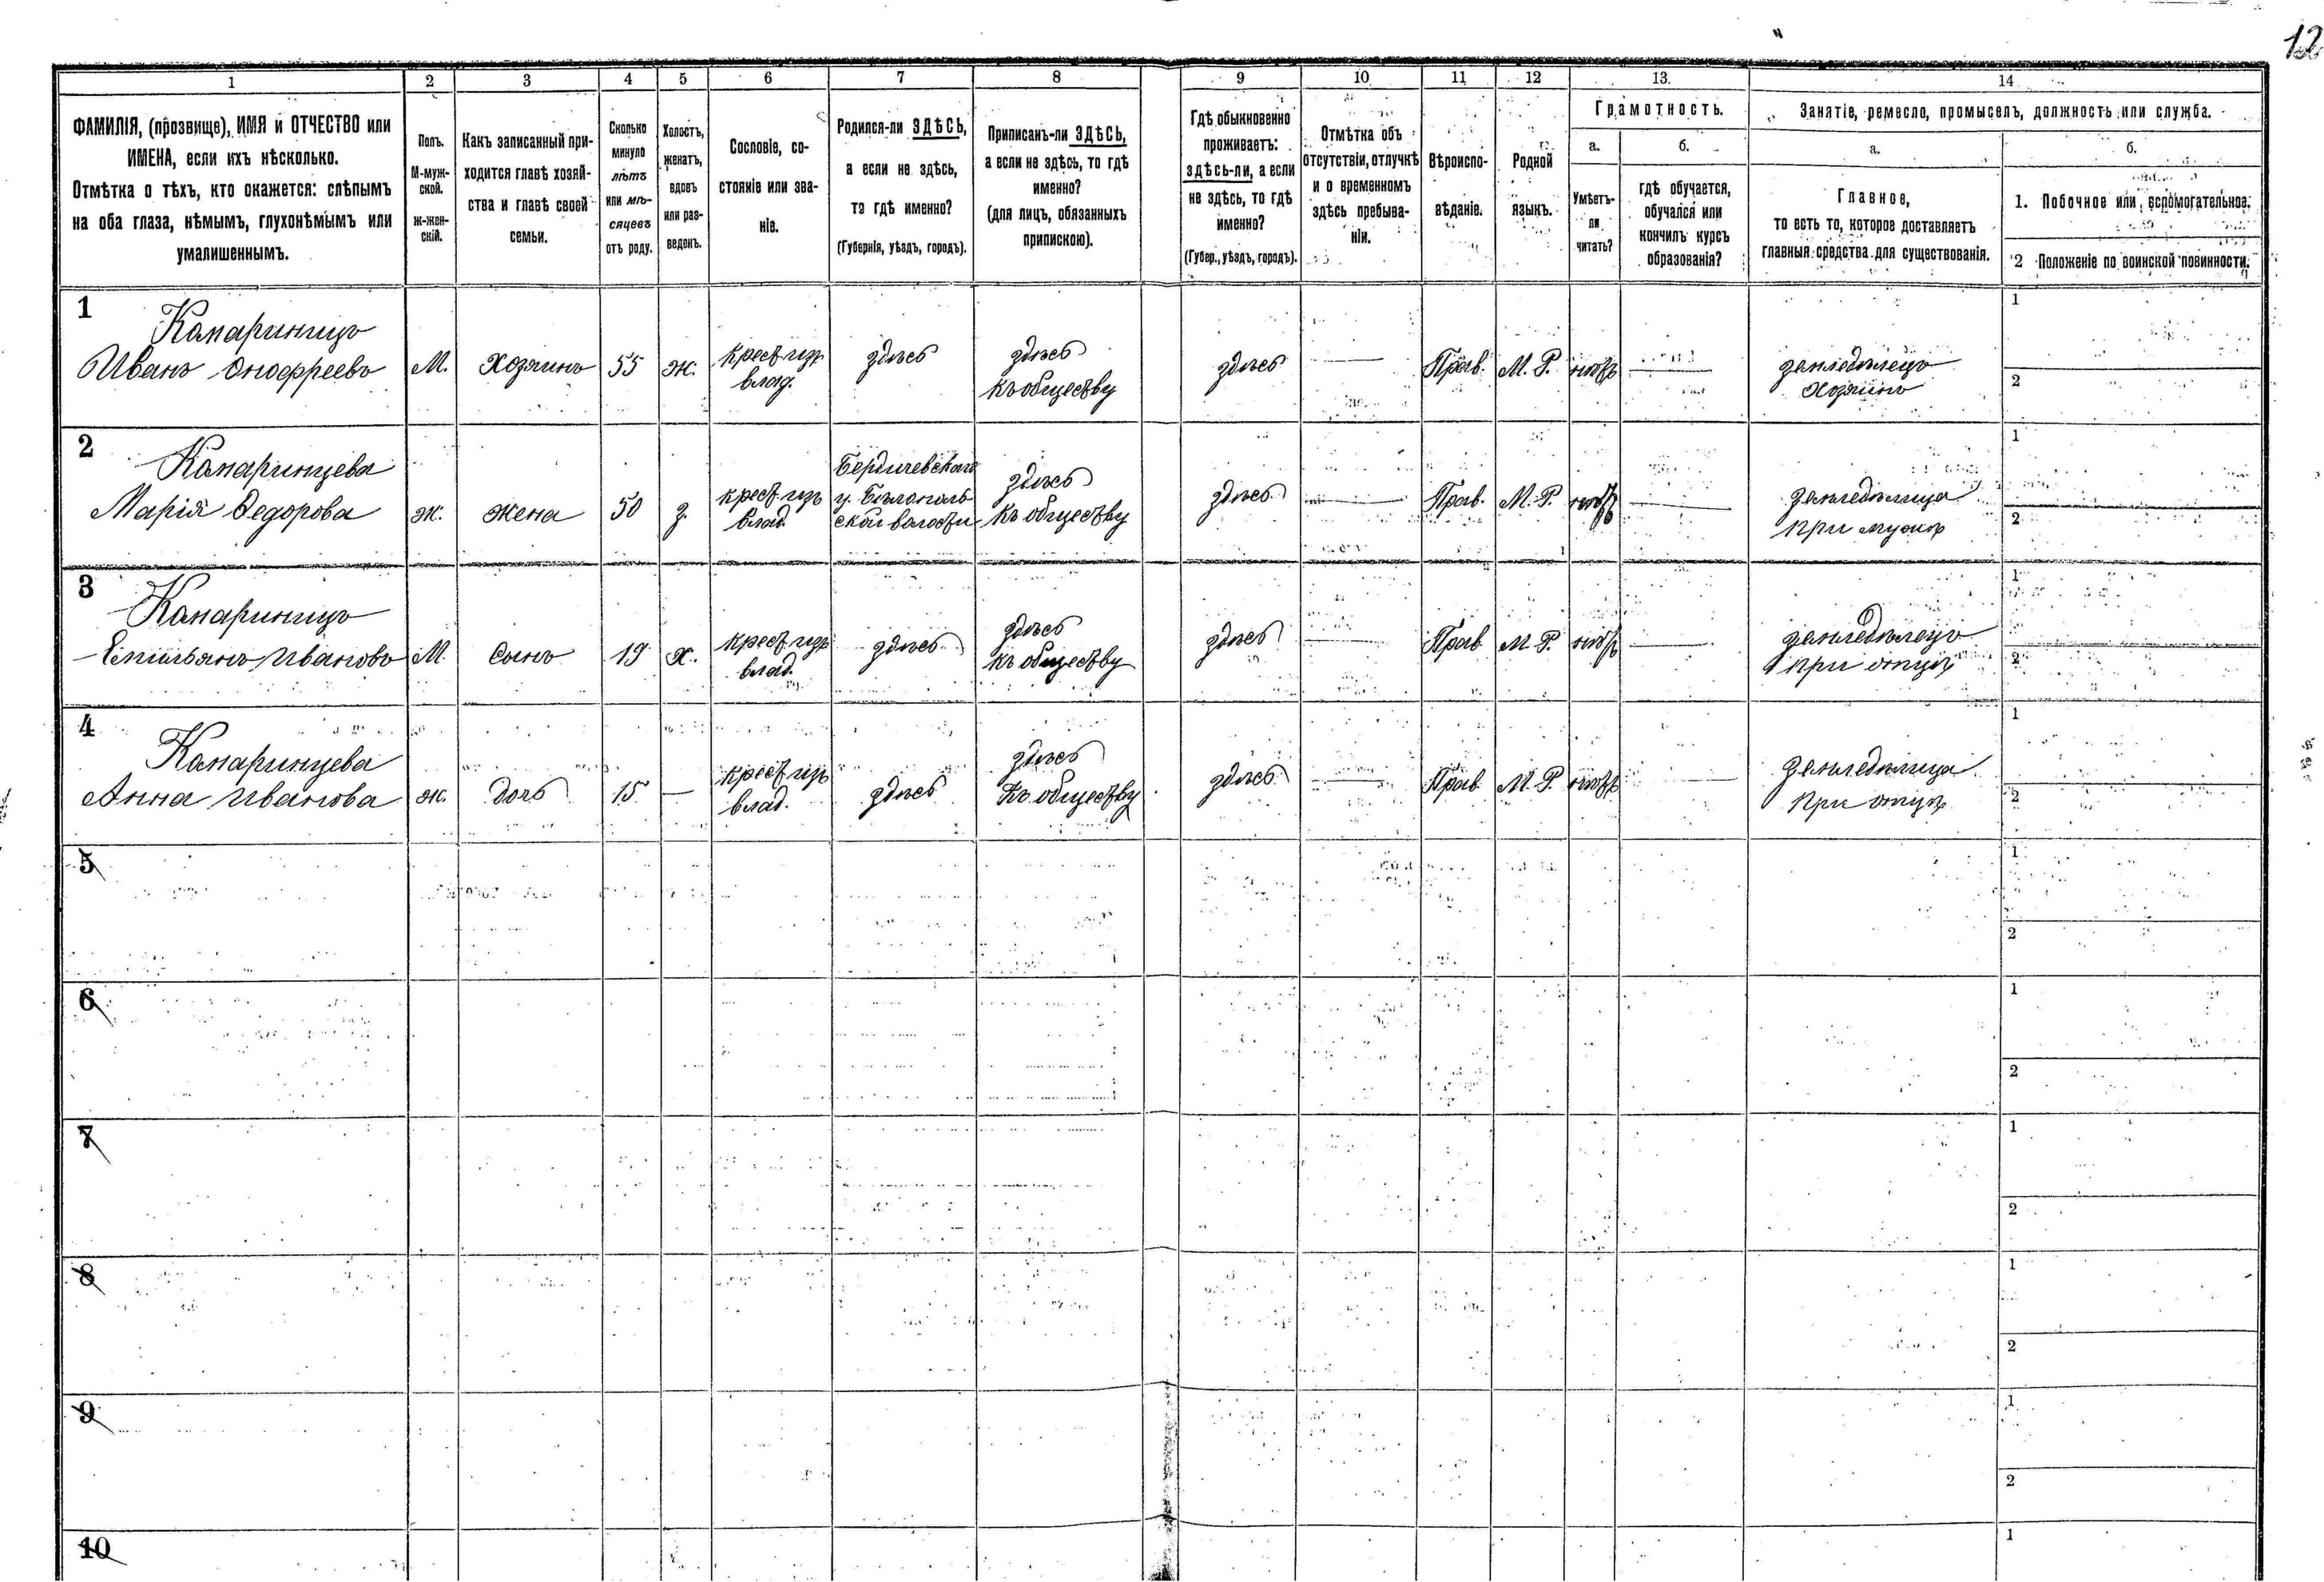 12
1
2
3
4
5
6
7
8
9
10
11
12
13.
14
ФАМИЛІЯ, (прозвище), ИМЯ и ОТЧЕСТВО или
ИМЕНА, если ихъ нѣсколько.
Отмѣтка о тѣхъ, кто окажется: слѣпымъ
на оба глаза, нѣмымъ, глухонѣмымъ или
умалишеннымъ.
Полъ.
М-муж-
ской.
Ж-жен-
скій.
Какъ записанный при-
ходится главѣ хозяй-
ства и главѣ своей
семьи.
Сколько
минуло
лѣтъ
или мѣ-
сяцевъ
отъ роду.
Холостъ,
женатъ,
вдовъ
или раз-
веденъ.
Сословіе, со-
стояніе или зва-
ніе.
Родился-ли ЗДѢСЬ,
а если не здѣсь,
то гдѣ именно?
(Губернія, уѣздъ, городъ).
Приписанъ-ли ЗДѢСЬ,
а если не здѣсь, то гдѣ
именно?
(для лицъ, обязанныхъ
припискою).
Гдѣ обыкновенно
проживаетъ:
здѣсь-ли, а если
не здѣсь, то гдѣ
именно?
(Губер., уѣздъ, городъ).
Отмѣтка объ
отсутствіи, отлучкѣ
и о временномъ
здѣсь пребыва-
ніи.
Вѣроиспо-
вѣданіе.
Родной
языкъ.
Грамотность.
а.
Умѣетъ-
ли
читать?
б.
гдѣ обучается,
обучался или
кончилъ курсъ
образованія?
Занятіе, ремесло, промыселъ, должность или служба.
а.
Главное,
то есть то, которое доставляетъ
главныя средства для существованія.
б.
1. Побочное или вспомогательное.
2 Положеніе по воинской повинности.
1
Иванъ Онофреевъ
М.
Хозяинъ
55
ж.
крест. изъ
влад.
здѣсь
здѣсь
къ обществу
здѣсь
—
Прав.
М. Р.
нѣтъ
—
земледѣлецъ
Хозяинъ
1
2
2
Марія Федорова
ж.
жена
50
з.
крест. изъ
влад.
Бердичевскаго
у. Бѣлополь
ской волости
здѣсь
къ обществу
здѣсь
—
Прав.
М. Р.
нѣтъ
—
земледѣлица
при мужѣ
1
2
3
Емильянъ Ивановъ
М.
Сынъ
19
х.
крест. изъ
влад.
здѣсь
здѣсь
къ обществу
здѣсь
—
Прав.
М. Р.
нѣтъ
—
земледѣлецъ
при отцѣ
1
2
4
Анна Иванова
ж.
дочь
15
—
крест. изъ
влад.
здѣсь
здѣсь
къ обществу
здѣсь
—
Прав.
М. Р.
нѣтъ
—
земледѣлица
при отцѣ
1
2
5
1
2
6
1
2
7
1
2
8
1
2
9
1
2
10
1